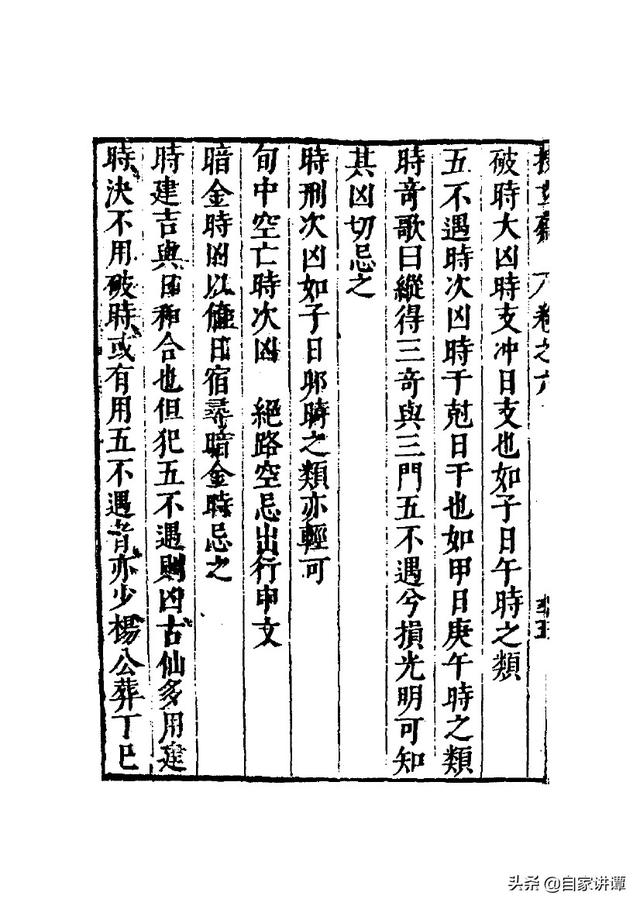 卷之六
破時大凶時支冲日支也如子日午時之類
五不遇時次凶時干尅日干也如甲日庚午時之類
時竒歌曰縱得三竒與三門五不遇兮損光明可知
其凶切忌之
時刑次凶如子日夘時之類亦輕可
旬中空亡時次凶 絕路空忌出行申文
暗金時凶以值日宿尋暗金時忌之
時建吉與日和合也但犯五不遇則凶古仙多用建
時決不用破時或有用五不遇者亦少楊公葬丁巳
头条 @自家讲谭